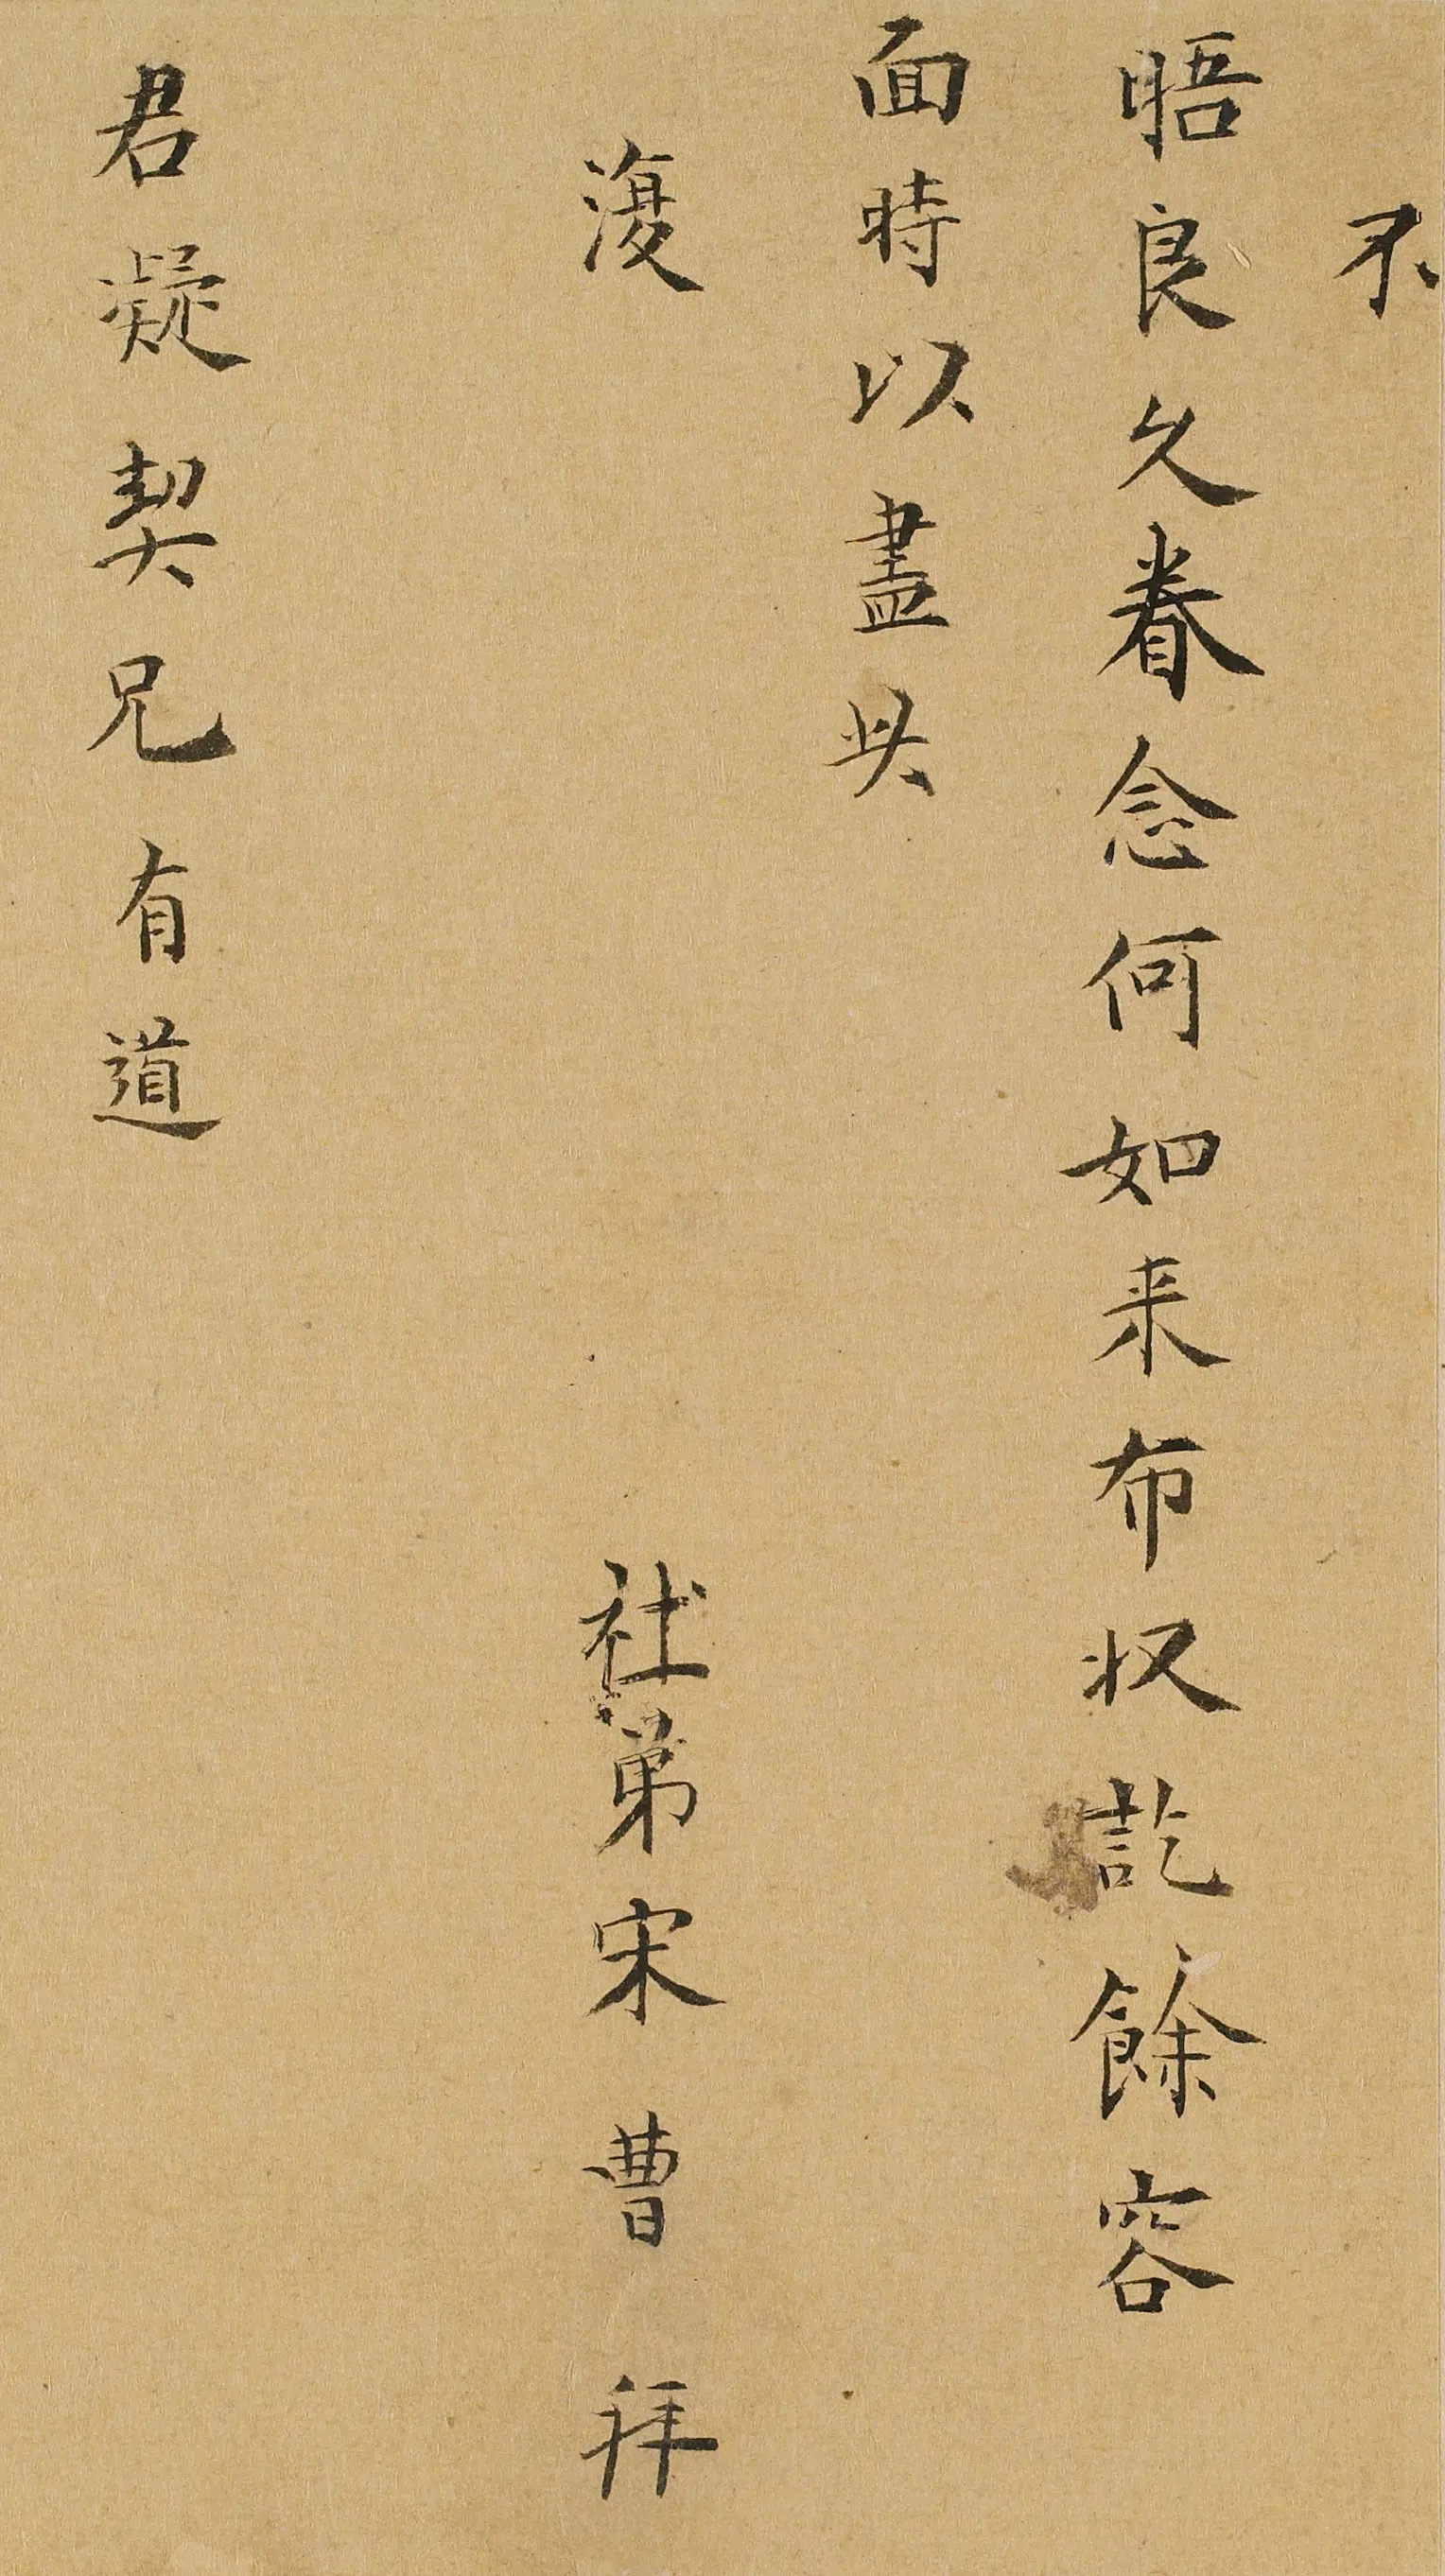 不
晤良久眷念何如来布収訖餘容
面時以盡
復 社弟宋曹拜
君凝契兄有道